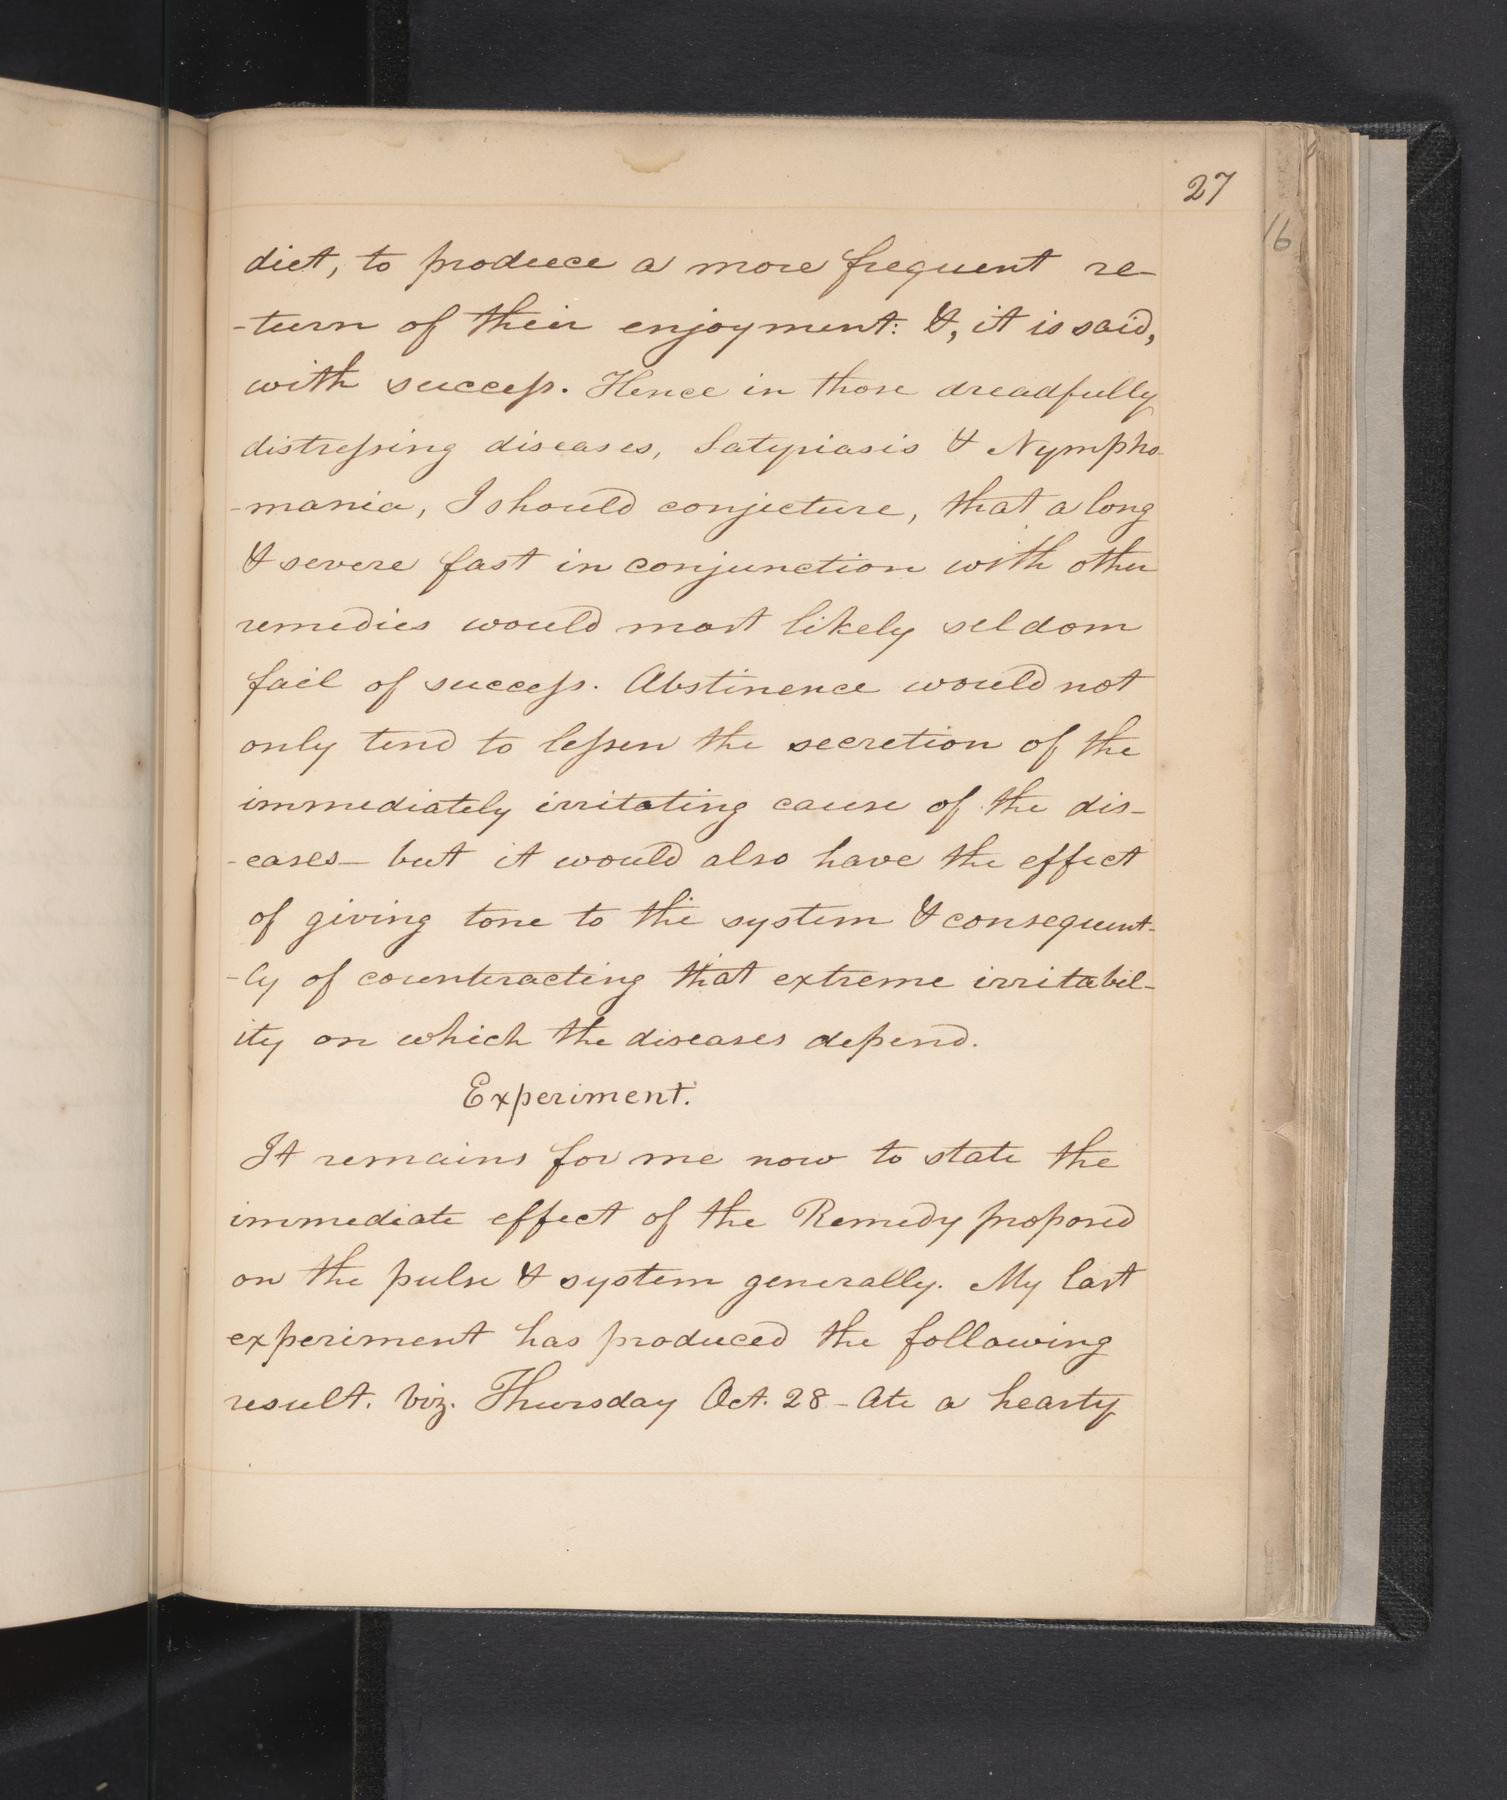 27
16
diet, to produce a more frequent re-
-turn of their enjoyment: &, it is said,
with success. Hence in those dreadfully
distressing diseases, Satyriasis & Nympho-
-mania, I should conjecture, that a long
& severe fast in conjunction with other
remedies would most likely seldom
fail of success. Abstinence would not
only tend to lessen the secretion of the
immediately irritating cause of the dis-
-eases- but it would also have the effect
of giving tone to the system & consequent-
-ly of counteracting that extreme irritabil-
ity on which the diseases depend.
Experiment.
It remains for me now to state the
immediate effect of the Remedy proposed
on the pulse & system generally. My last
experiment has produced the following
result. viz. Thursday Oct. 28 - Ate a hearty